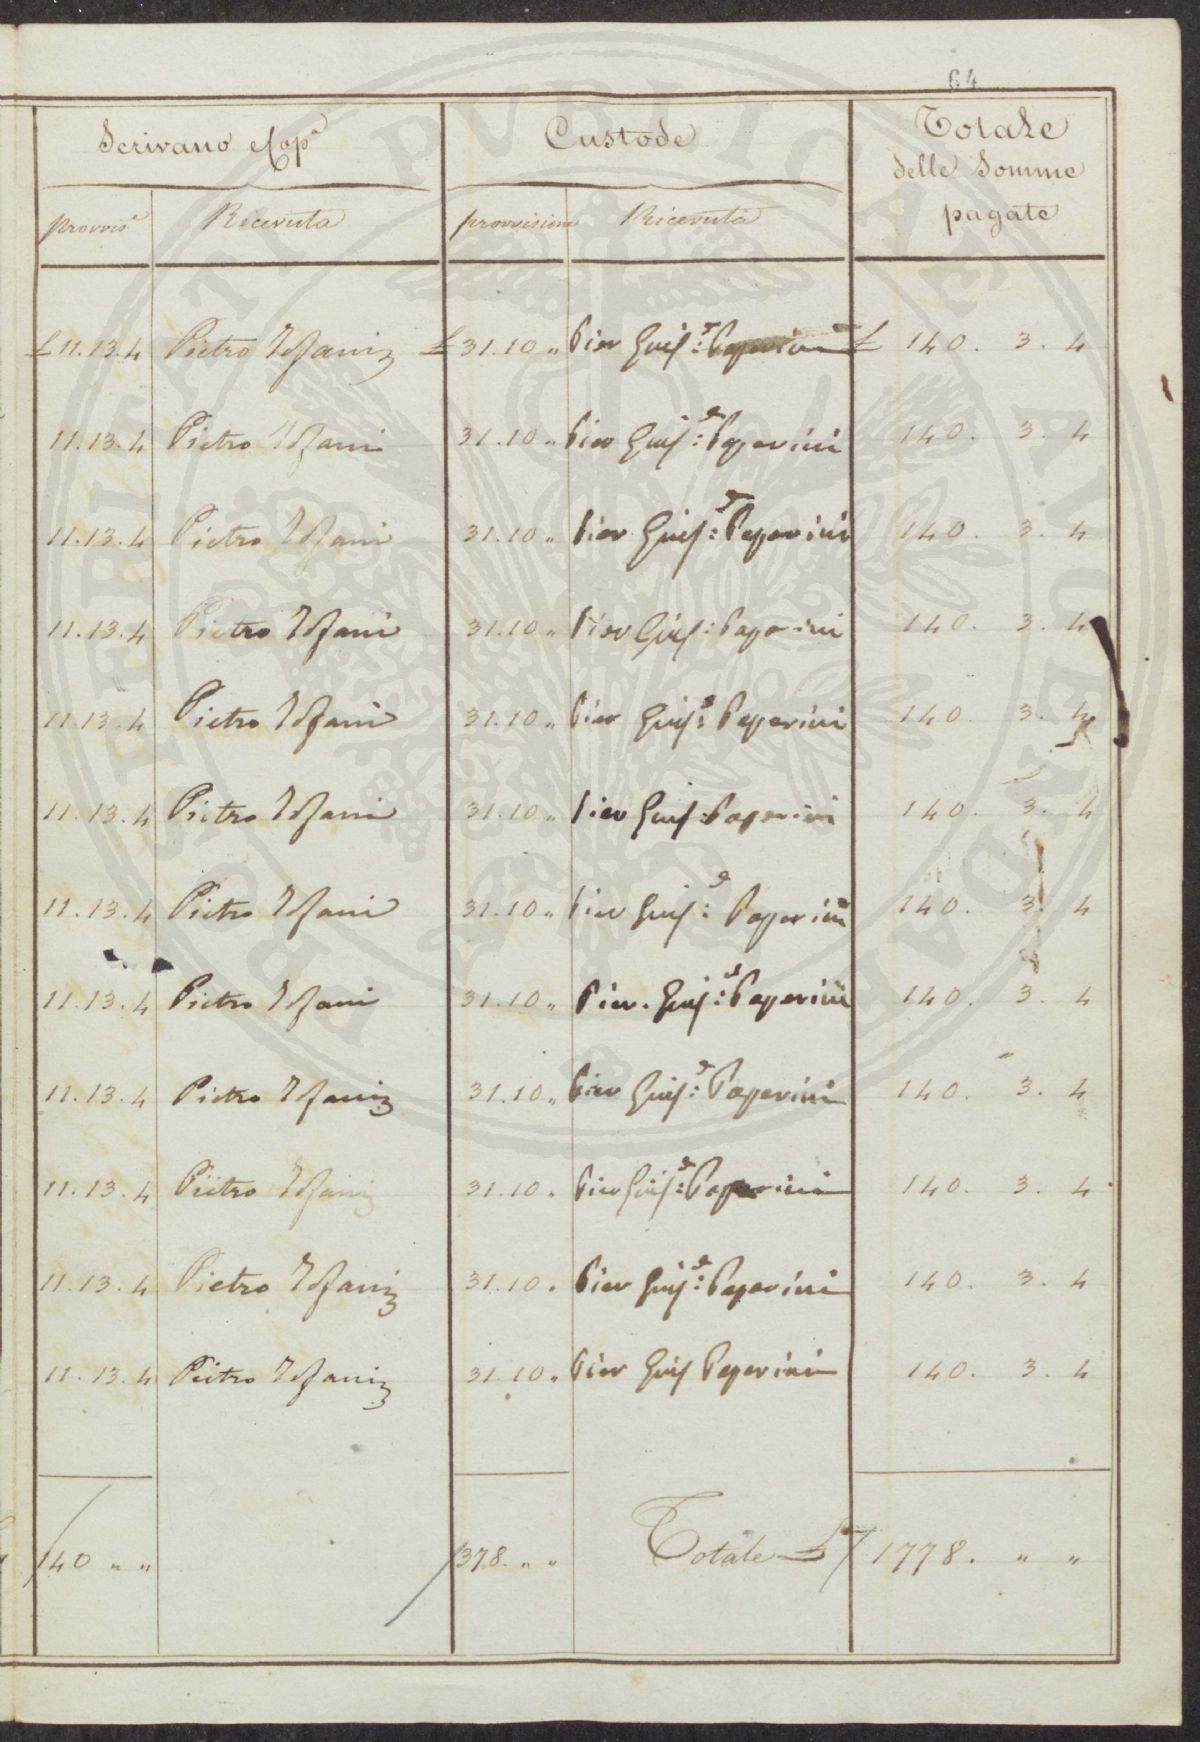 64
Scrivano e Cop.ª Custode Totale
delle Somme
pagate
provvis.e Ricevuta provvisione Ricevuta
£ 11.13.4 Pietro £ 31.10 „ Pier Gius:e Paperini £ 140. 3. 4
11.13.4 Pietro 31.10 „ Pier Gius:e Paperini 140. 3. 4
11.13.4 Pietro 31.10 „ Pier Gius:e Paperini 140. 3. 4
11.13.4 Pietro 31.10 „ Pier Gius: Paperini 140. 3. 4
11.13.4 Pietro 31.10 „ Pier Gius:e Paperini 140. 3. 4
11.13.4 Pietro 31.10 „ Pier Gius: Paperini 140. 3. 4
11.13.4 Pietro 31.10 „ Pier Gius:e Paperini 140. 3. 4
11.13.4 Pietro 31.10 „ Pier Gius:e Paperini 140. 3. 4
11.13.4 Pietro 31.10 „ Pier Gius:e Paperini 140. 3. 4
11.13.4 Pietro 31.10 „ Pier Gius:e Paperini 140. 3. 4
11.13.4 Pietro 31.10 „ Pier Gius:e Paperini 140. 3. 4
11.13.4 Pietro 31.10 „ Pier Gius Paperini 140. 3. 4
140 „ „ 378. „ „ Totale £ 1778. „ „